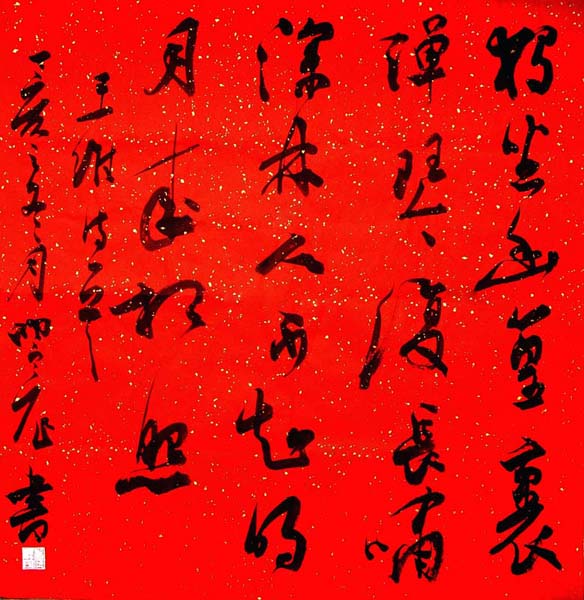 獨坐幽篁裏
彈琴復長嘯
深林人不知明
月来相照
王維诗一首
丁亥月書